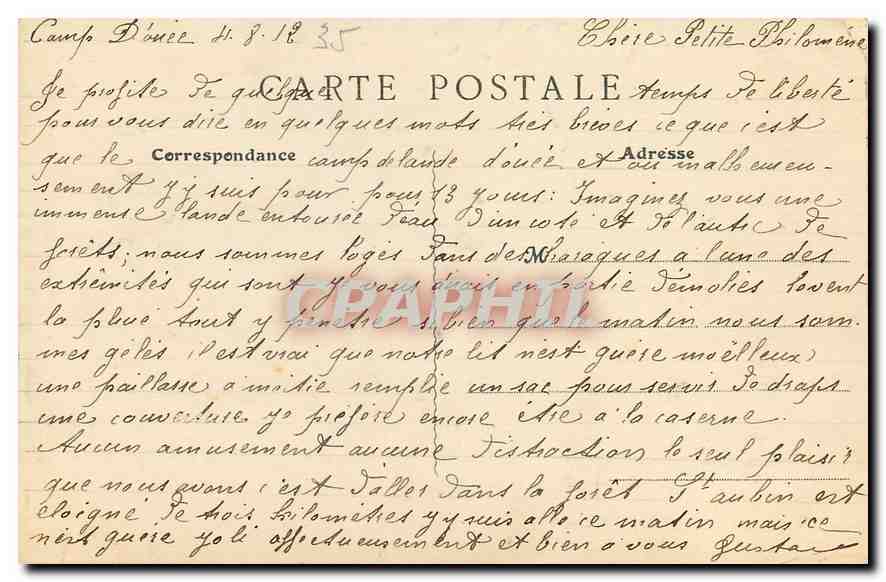 Camp D'ouée 4.8.12 35 Chère Petite Philomène
Je profite de quelque CARTE POSTALE temps de liberté
pour vous dire en quelques mots très brèves ce que c'est
que le Correspondance camp de lande d'ouée et Adresse ou malheureu-
sement j'y suis pour pour 13 jours : Imaginez vous une
immense lande entourée d'eau d'un coté et de l'autre de
forêts; nous sommes logés dans des M baraques a l'une des
extrêmités qui sont je vous dirais en partie démolies le vent
la pluie tout y penetre si bien que le matin nous som-
mes gélés il est vrai que notre lit n'est guère moëlleux
une paillasse a mitié remplie un sac pour servir de draps
une couverture je préfère encore être à la caserne.
Aucun amusement aucune distraction le seul plaisir
que nous avons c'est d'aller dans la forêt St aubin est
eloigné de trois kilomètres j'y suis allé ce matin mais ce
n'est guere joli affectueusement et bien a vous Gustave
CPAPHIL